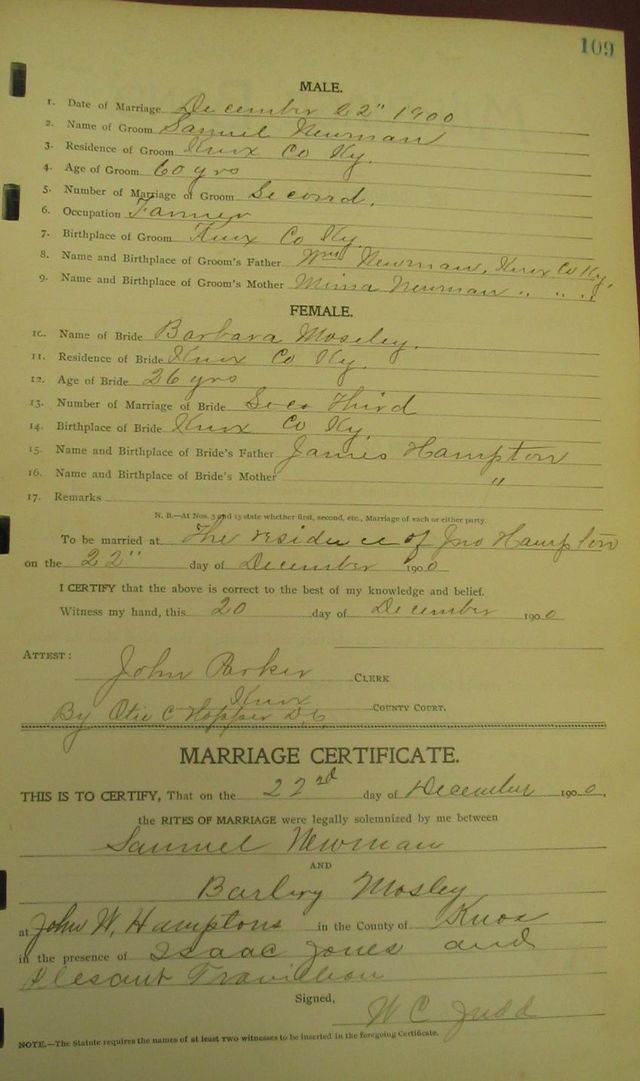 109
MALE.
1. Date of Marriage December 22" 1900
2. Name of Groom Samuel Newman
3. Residence of Groom Knox Co Ky.
4. Age of Groom 60 yrs
5. Number of Marriage of Groom Second.
6. Occupation Farmer
7. Birthplace of Groom Knox Co Ky.
8. Name and Birthplace of Groom's Father Wm Newman, Knox Co Ky,
9. Name and Birthplace of Groom's Mother Mima Newman " " "
FEMALE.
10. Name of Bride Barbara Moseley.
11. Residence of Bride Knox Co Ky.
12. Age of Bride 26 yrs
13. Number of Marriage of Bride Third
14. Birthplace of Bride Knox Co Ky.
15. Name and Birthplace of Bride's Father James Hampton
16. Name and Birthplace of Bride's Mother "
17. Remarks
N. B.—At Nos. 5 and 13 state whether first, second, etc., Marriage of each or either party.
To be married at The residence of Jno Hampton
on the 22" day of December 1900
I CERTIFY that the above is correct to the best of my knowledge and belief.
Witness my hand, this 20 day of December 1900
ATTEST:
John Parker CLERK
Knox COUNTY COURT.
By Otis C Hopper D.C.
MARRIAGE CERTIFICATE.
THIS IS TO CERTIFY, That on the 22nd day of December 1900,
the RITES OF MARRIAGE were legally solemnized by me between
Samuel Newman
AND
Barbry Mosley
at John W. Hamptons in the County of Knox
in the presence of Isaac Jones and
Plesant
Signed,
W C Judd
NOTE.—The Statute requires the names of at least two witnesses to be inserted in the foregoing Certificate.